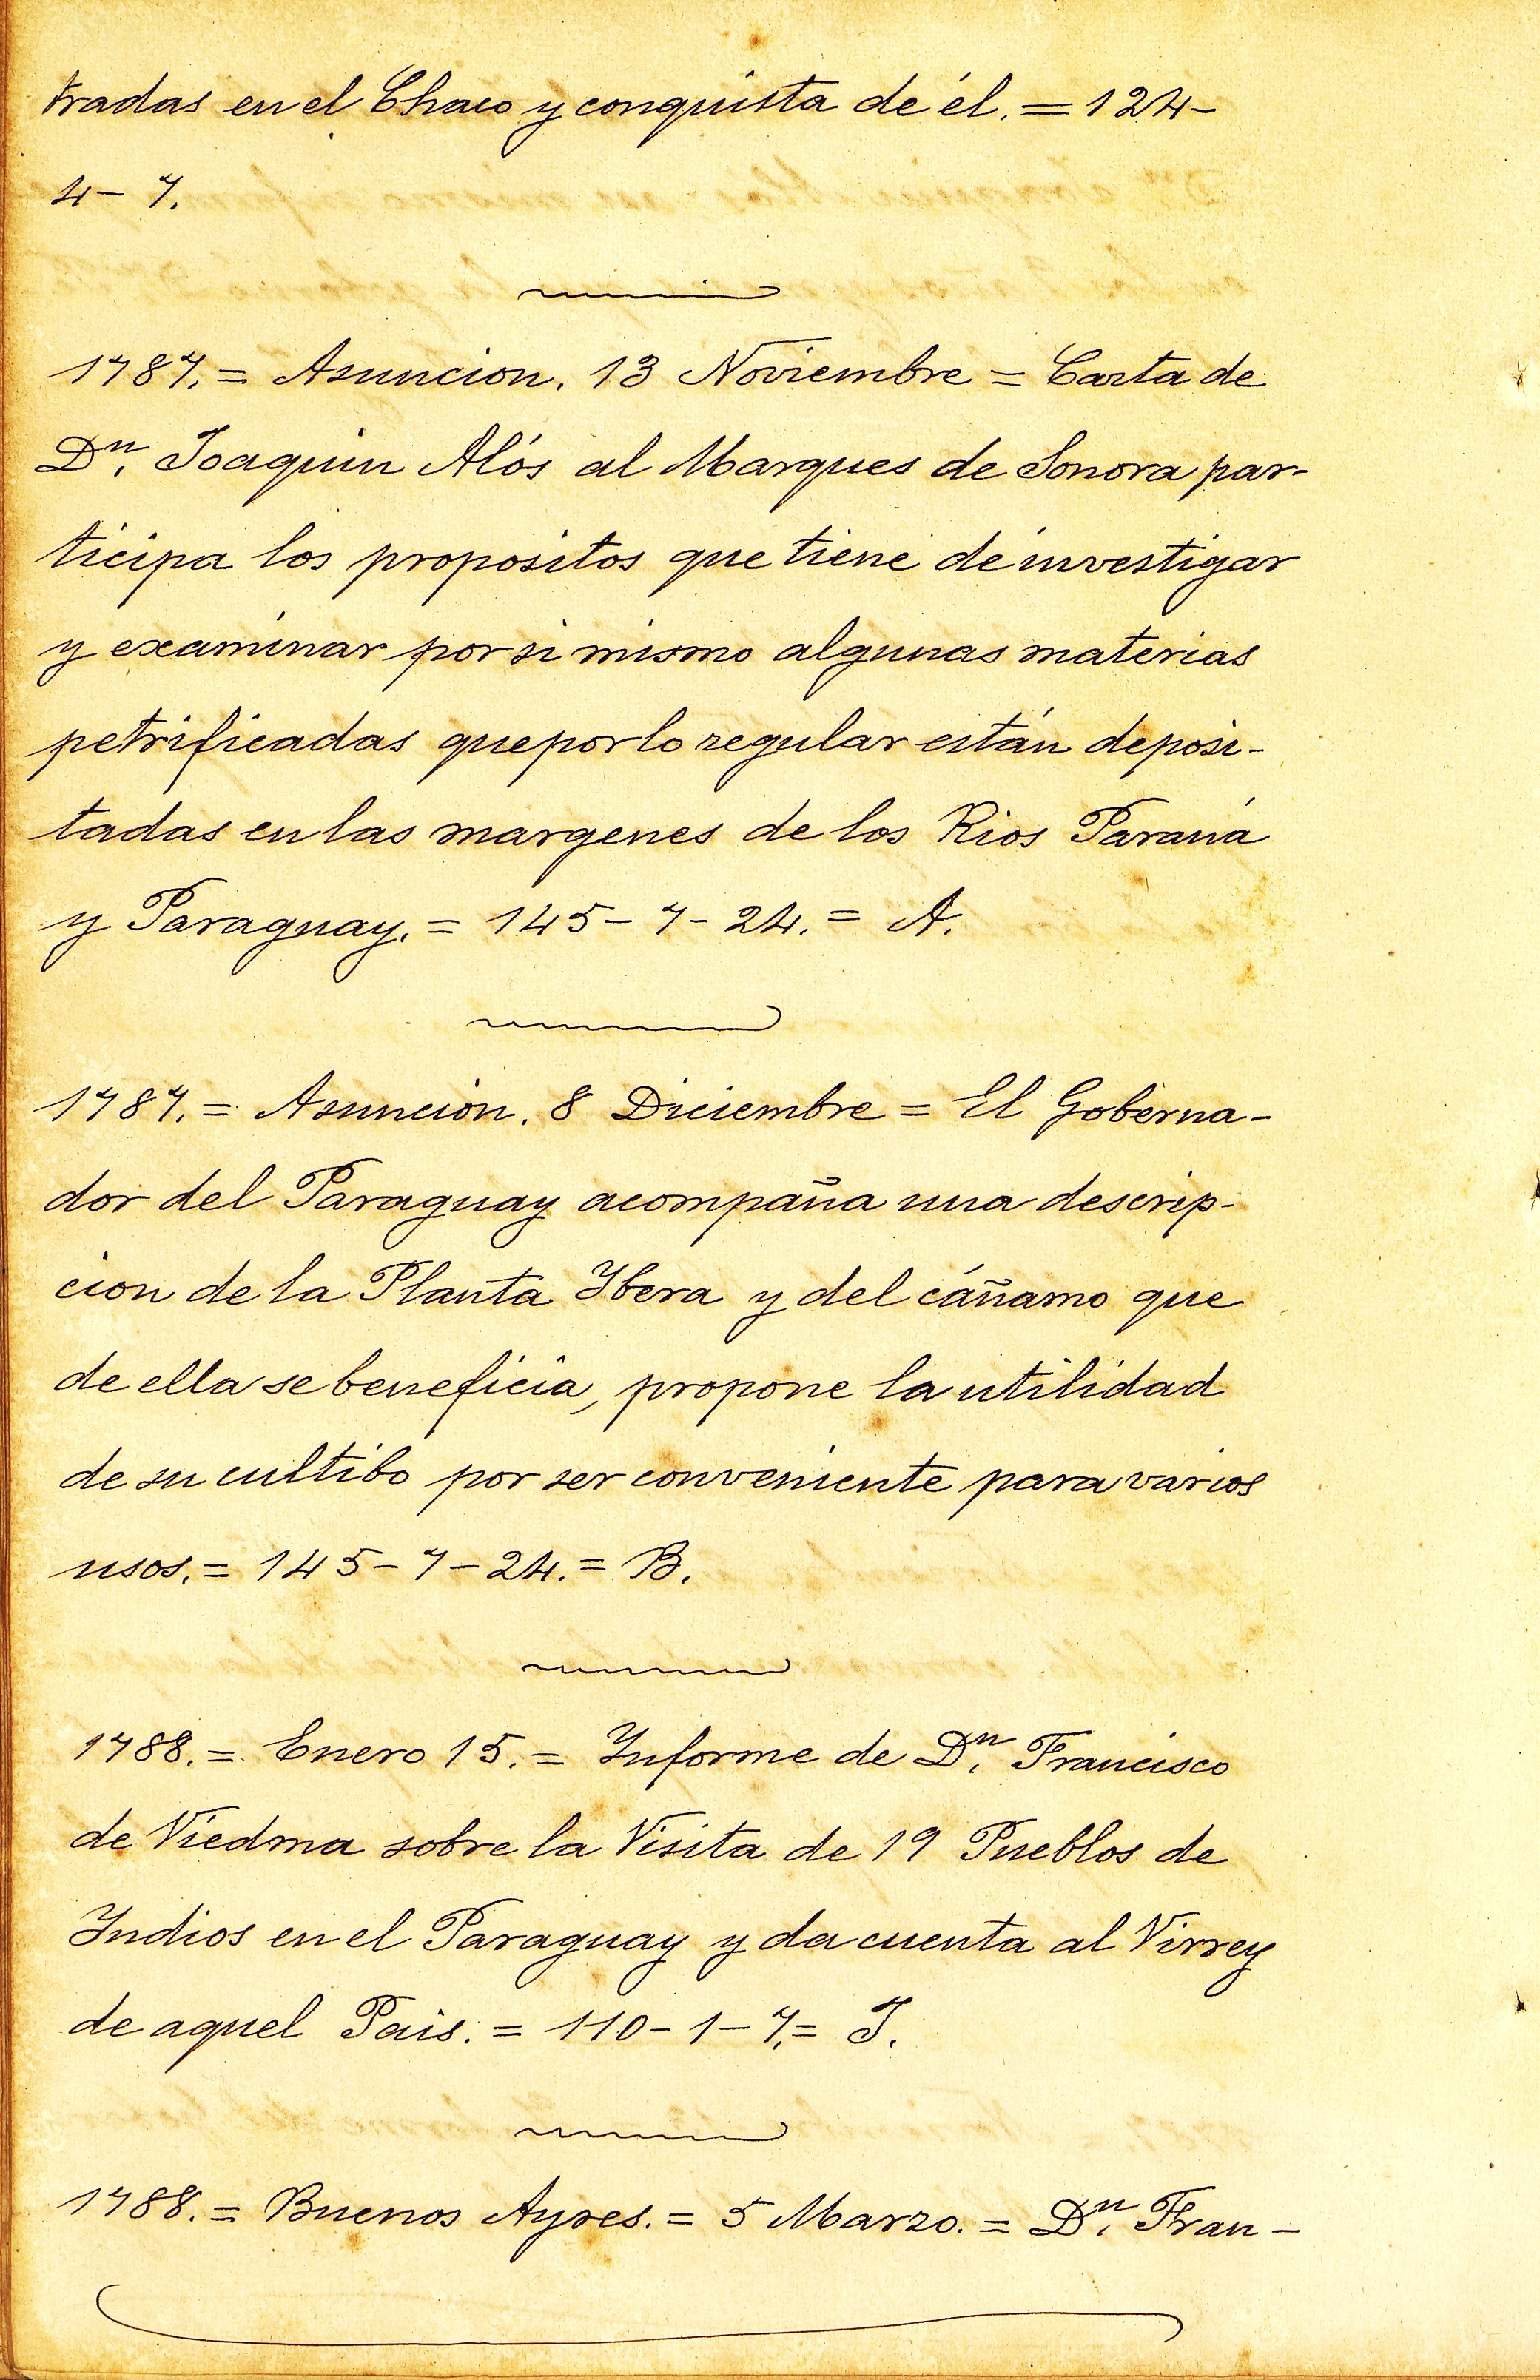 tradas en el Chaco y conquista de él. = 124-
4- 7.
1787. = Asuncion. 13 Noviembre = Carta de
Dn. Joaquin Alós al Marques de Sonora par-
ticipa los propositos que tiene de investigar
y examinar por si mismo algunas materias
petrificadas que por lo regular están deposi-
tadas en las margenes de los Rios Paraná
y Paraguay. = 145- 7- 24. = A.
1787. = Asuncion. 8 Diciembre = El Goberna-
dor del Paraguay acompaña una descrip-
cion de la Planta Ybera y del cáñamo que
de ella se beneficia, propone la utilidad
de su cultibo por ser conveniente para varios
usos. = 145- 7- 24. = B.
1788. = Enero 15. = Informe de Dn. Francisco
de Viedma sobre la Visita de 19 Pueblos de
Indios en el Paraguay y da cuenta al Virrey
de aquel Pais. = 110- 1- 7. = J.
1788. = Buenos Ayres. = 5 Marzo. = Dn. Fran-